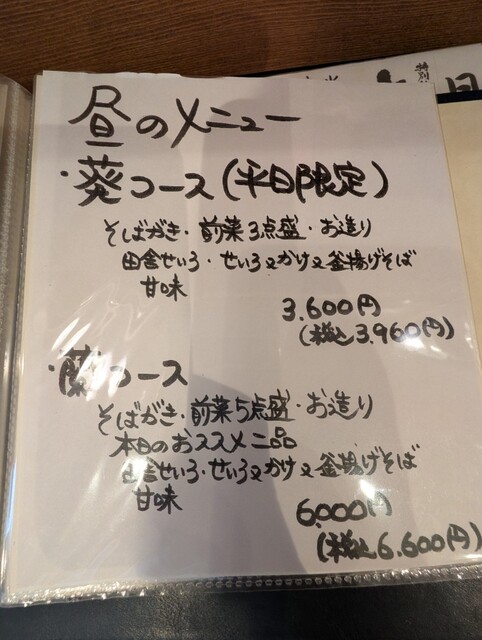 昼のメニュー
・葵コース(平日限定)
そばがき・前菜3点盛・お造り
田舎せいろ・せいろ又かけ又釜揚げそば
甘味
3.600円
(税込3.960円)
・蘭コース
そばがき・前菜5点盛・お造り
本日のおススメ二品
田舎せいろ・せいろ又かけ又釜揚げそば
甘味
6.000円
(税込6.600円)
特別